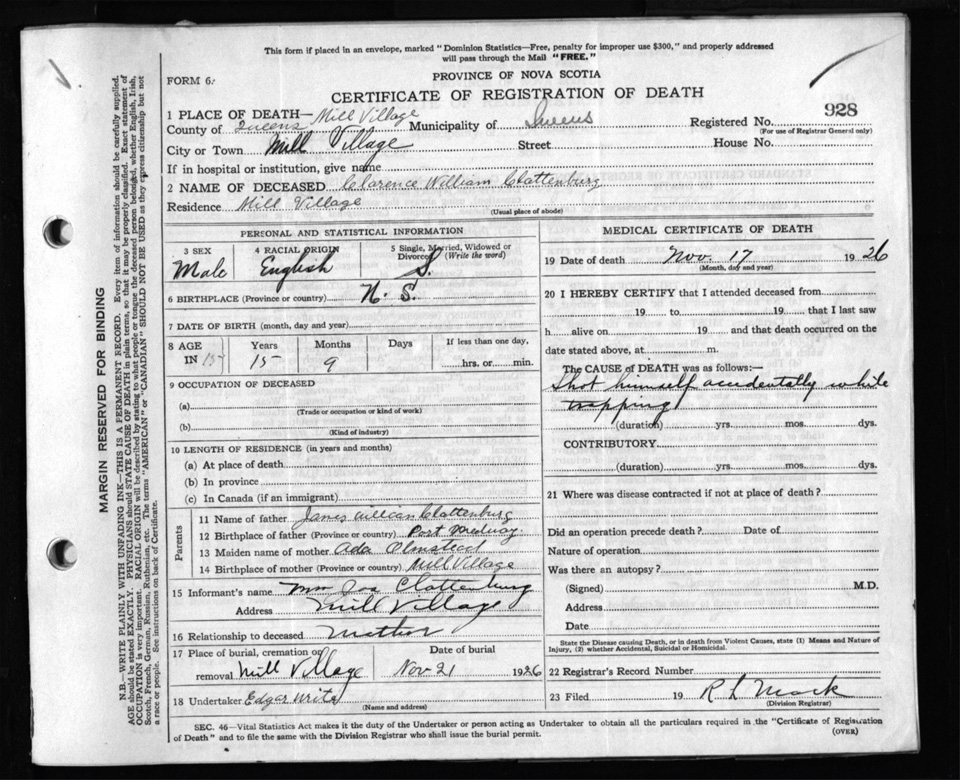 This form if placed in an envelope, marked "Dominion Statistics—Free, penalty for improper use $300," and properly addressed
will pass through the Mail "FREE."
PROVINCE OF NOVA SCOTIA
FORM 6.
CERTIFICATE OF REGISTRATION OF DEATH
928
1 PLACE OF DEATH— Mill Village
County of Queens Municipality of Queens Registered No.
(For use of Registrar General only)
City or Town Mill Village Street House No.
If in hospital or institution, give name
2 NAME OF DECEASED Clarence William Clattenburg
Residence Mill Village
(Usual place of abode)
PERSONAL AND STATISTICAL INFORMATION
3 SEX Male
4 RACIAL ORIGIN English
5 Single, Married, Widowed or Divorced (Write the word) S.
6 BIRTHPLACE (Province or country) N. S.
7 DATE OF BIRTH (month, day and year)
8 AGE Years Months Days If less than one day,
IN 15 15 9 hrs. or min.
9 OCCUPATION OF DECEASED
(a)
(Trade or occupation or kind of work)
(b)
(Kind of industry)
10 LENGTH OF RESIDENCE (in years and months)
(a) At place of death
(b) In province
(c) In Canada (if an immigrant)
Parents
11 Name of father James William Clattenburg
12 Birthplace of father (Province or country) Port Medway
13 Maiden name of mother Ada Olmstead
14 Birthplace of mother (Province or country) Mill Village
15 Informant's name Mrs Clattenburg
Address Mill Village
16 Relationship to deceased Mother
17 Place of burial, cremation or removal Mill Village
Date of burial
Nov 21 1926
18 Undertaker Edgar
(Name and address)
MEDICAL CERTIFICATE OF DEATH
19 Date of death Nov. 17 1926
(Month, day and year)
20 I HEREBY CERTIFY that I attended deceased from
19 to 19 that I last saw
h alive on 19 and that death occurred on the
date stated above, at m.
The CAUSE OF DEATH was as follows:—
Shot himself accidentally while
trapping
(duration) yrs. mos. dys.
CONTRIBUTORY
(duration) yrs. mos. dys.
21 Where was disease contracted if not at place of death?
Did an operation precede death? Date of
Nature of operation
Was there an autopsy?
(Signed) M.D.
Address
Date
State the Disease causing Death, or in death from Violent Causes, state (1) Means and Nature of
Injury, (2) whether Accidental, Suicidal or Homicidal.
22 Registrar's Record Number
23 Filed 19 R L Mack
(Division Registrar)
SEC. 46—Vital Statistics Act makes it the duty of the Undertaker or person acting as Undertaker to obtain all the particulars required in the "Certificate of Registration
of Death" and to file the same with the Division Registrar who shall issue the burial permit.
(OVER)
MARGIN RESERVED FOR BINDING
N.B.—WRITE PLAINLY WITH UNFADING INK—THIS IS A PERMANENT RECORD. Every item of information should be carefully supplied.
AGE should be stated EXACTLY. PHYSICIANS should STATE CAUSE OF DEATH in plain terms, so that it may be properly classified. Exact statement of
OCCUPATION is very important. RACIAL ORIGIN will be described by stating to what people or tongue the deceased person belonged, whether English, Irish,
Scotch, French, German, Russian, Ruthenian, etc. The terms "AMERICAN" or "CANADIAN" SHOULD NOT BE USED as they express citizenship but not
a race or people. See instructions on back of Certificate.